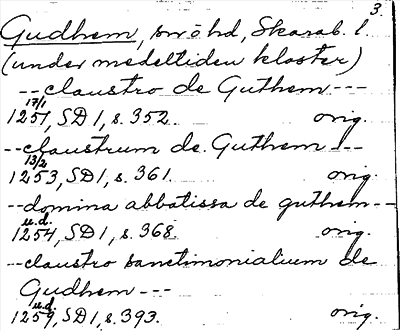 3.
Gudhem, sn o hd, Skarab. l.
(under medeltiden kloster)
--claustro de Guthem---
17/1
1251, SD 1, s. 352. orig.
--claustrum de Guthem---
13/2
1253, SD 1, s. 361. orig.
--domina abbatissa de guthem--
u.d.
1254, SD 1, s. 368. orig.
--claustro sanctimonialium de
Gudhem---
u.d.
1259, SD 1, s. 393. orig.